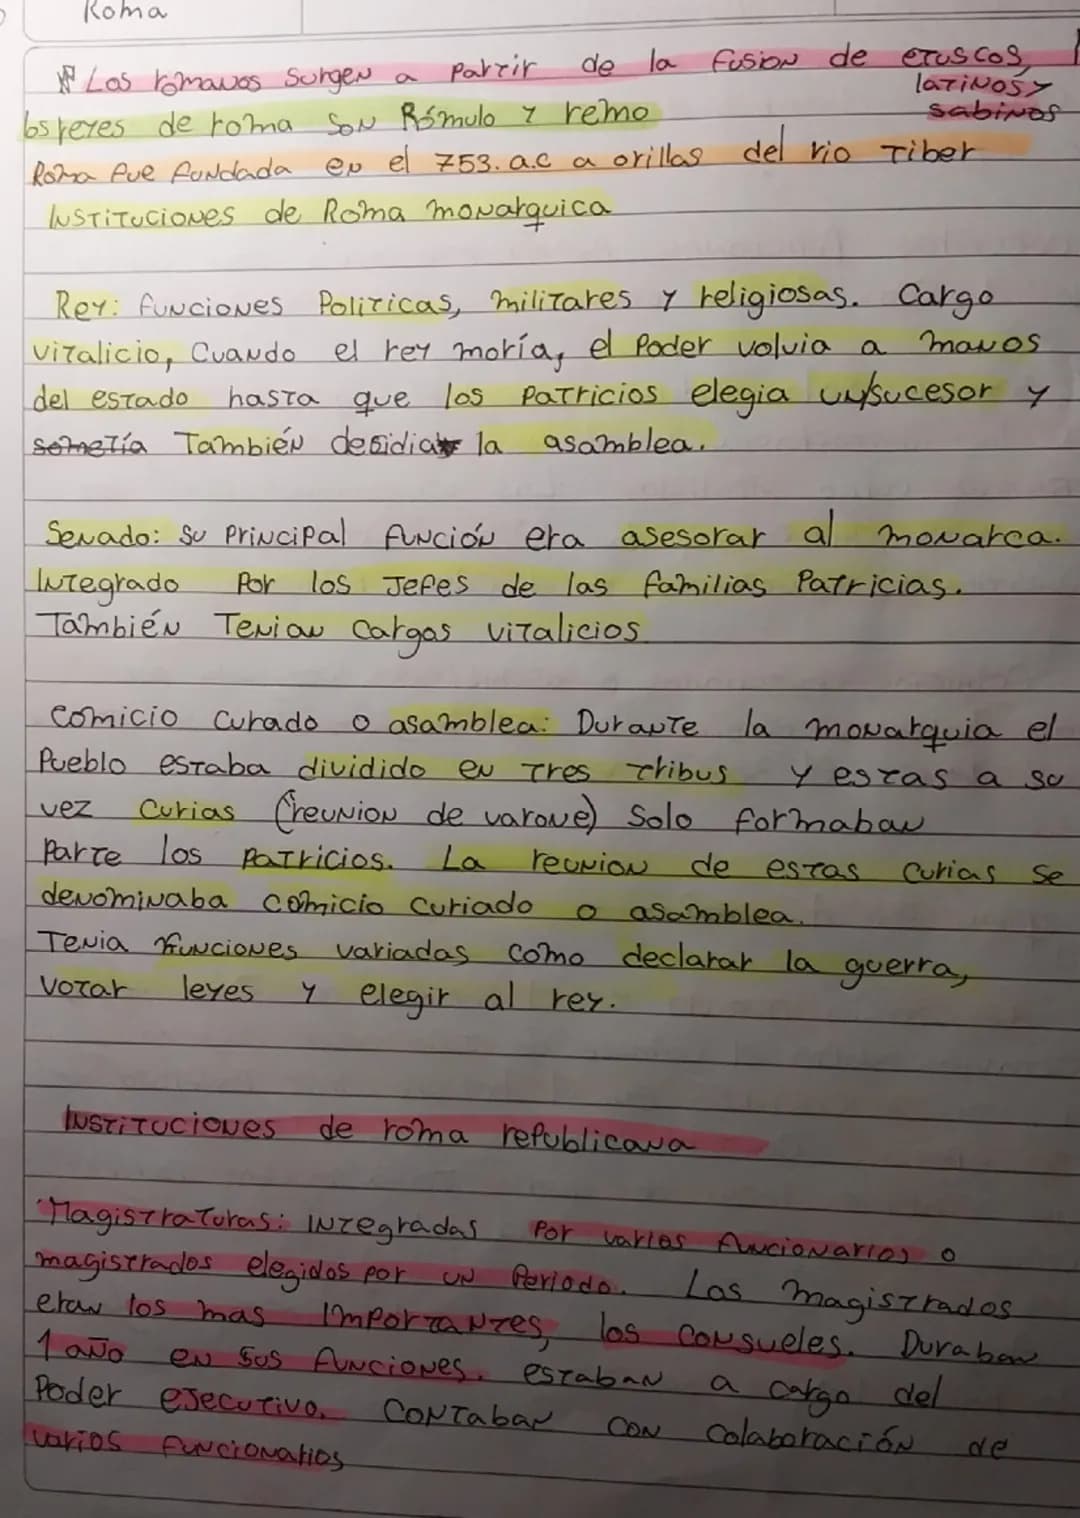 Roma
Los romanos surgen a partir de la fusion de etuscos,
latinos y
sabinos
los reyes de roma son Rómulo y remo
Roma fue fundada en el 753. a.c a orillas del rio Tiber
Instituciones de Roma monarquica
Rey: funciones Politicas, militares y religiosas. Cargo
vitalicio, Cuando el rey moría, el Poder volvia a manos
del estado hasta que los Patricios elegia un sucesor y
sometía También desidia la asamblea.
Senado: Su Principal función era asesorar al monarca.
Integrado Por los Jefes de las familias Patricias.
También Tenian Cargos vitalicios
Comicio Curado o asamblea: Durante la monarquia el
Pueblo estaba dividido en tres tribus y estas a su
vez Curias (reunion de varone) Solo formaban
Parte los Patricios. La reunion de estas Curias Se
denominaba comicio Curiado o asamblea.
Tenia funciones variadas como declarar la guerra,
Votar leyes y elegir al rey.
Instituciones de roma republicana
Magistraturas: Integradas Por varios funcionarios o
magistrados elegidos por un Periodo. Los magistrados
eran los mas Importantes, los Consueles. Duraban
1 año en sus funciones. estaban a cargo del
Poder ejecutivo. Contaban con colaboración de
varios funcionarios